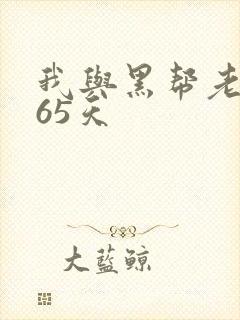 我與黑帮老
65天
大藍鲸